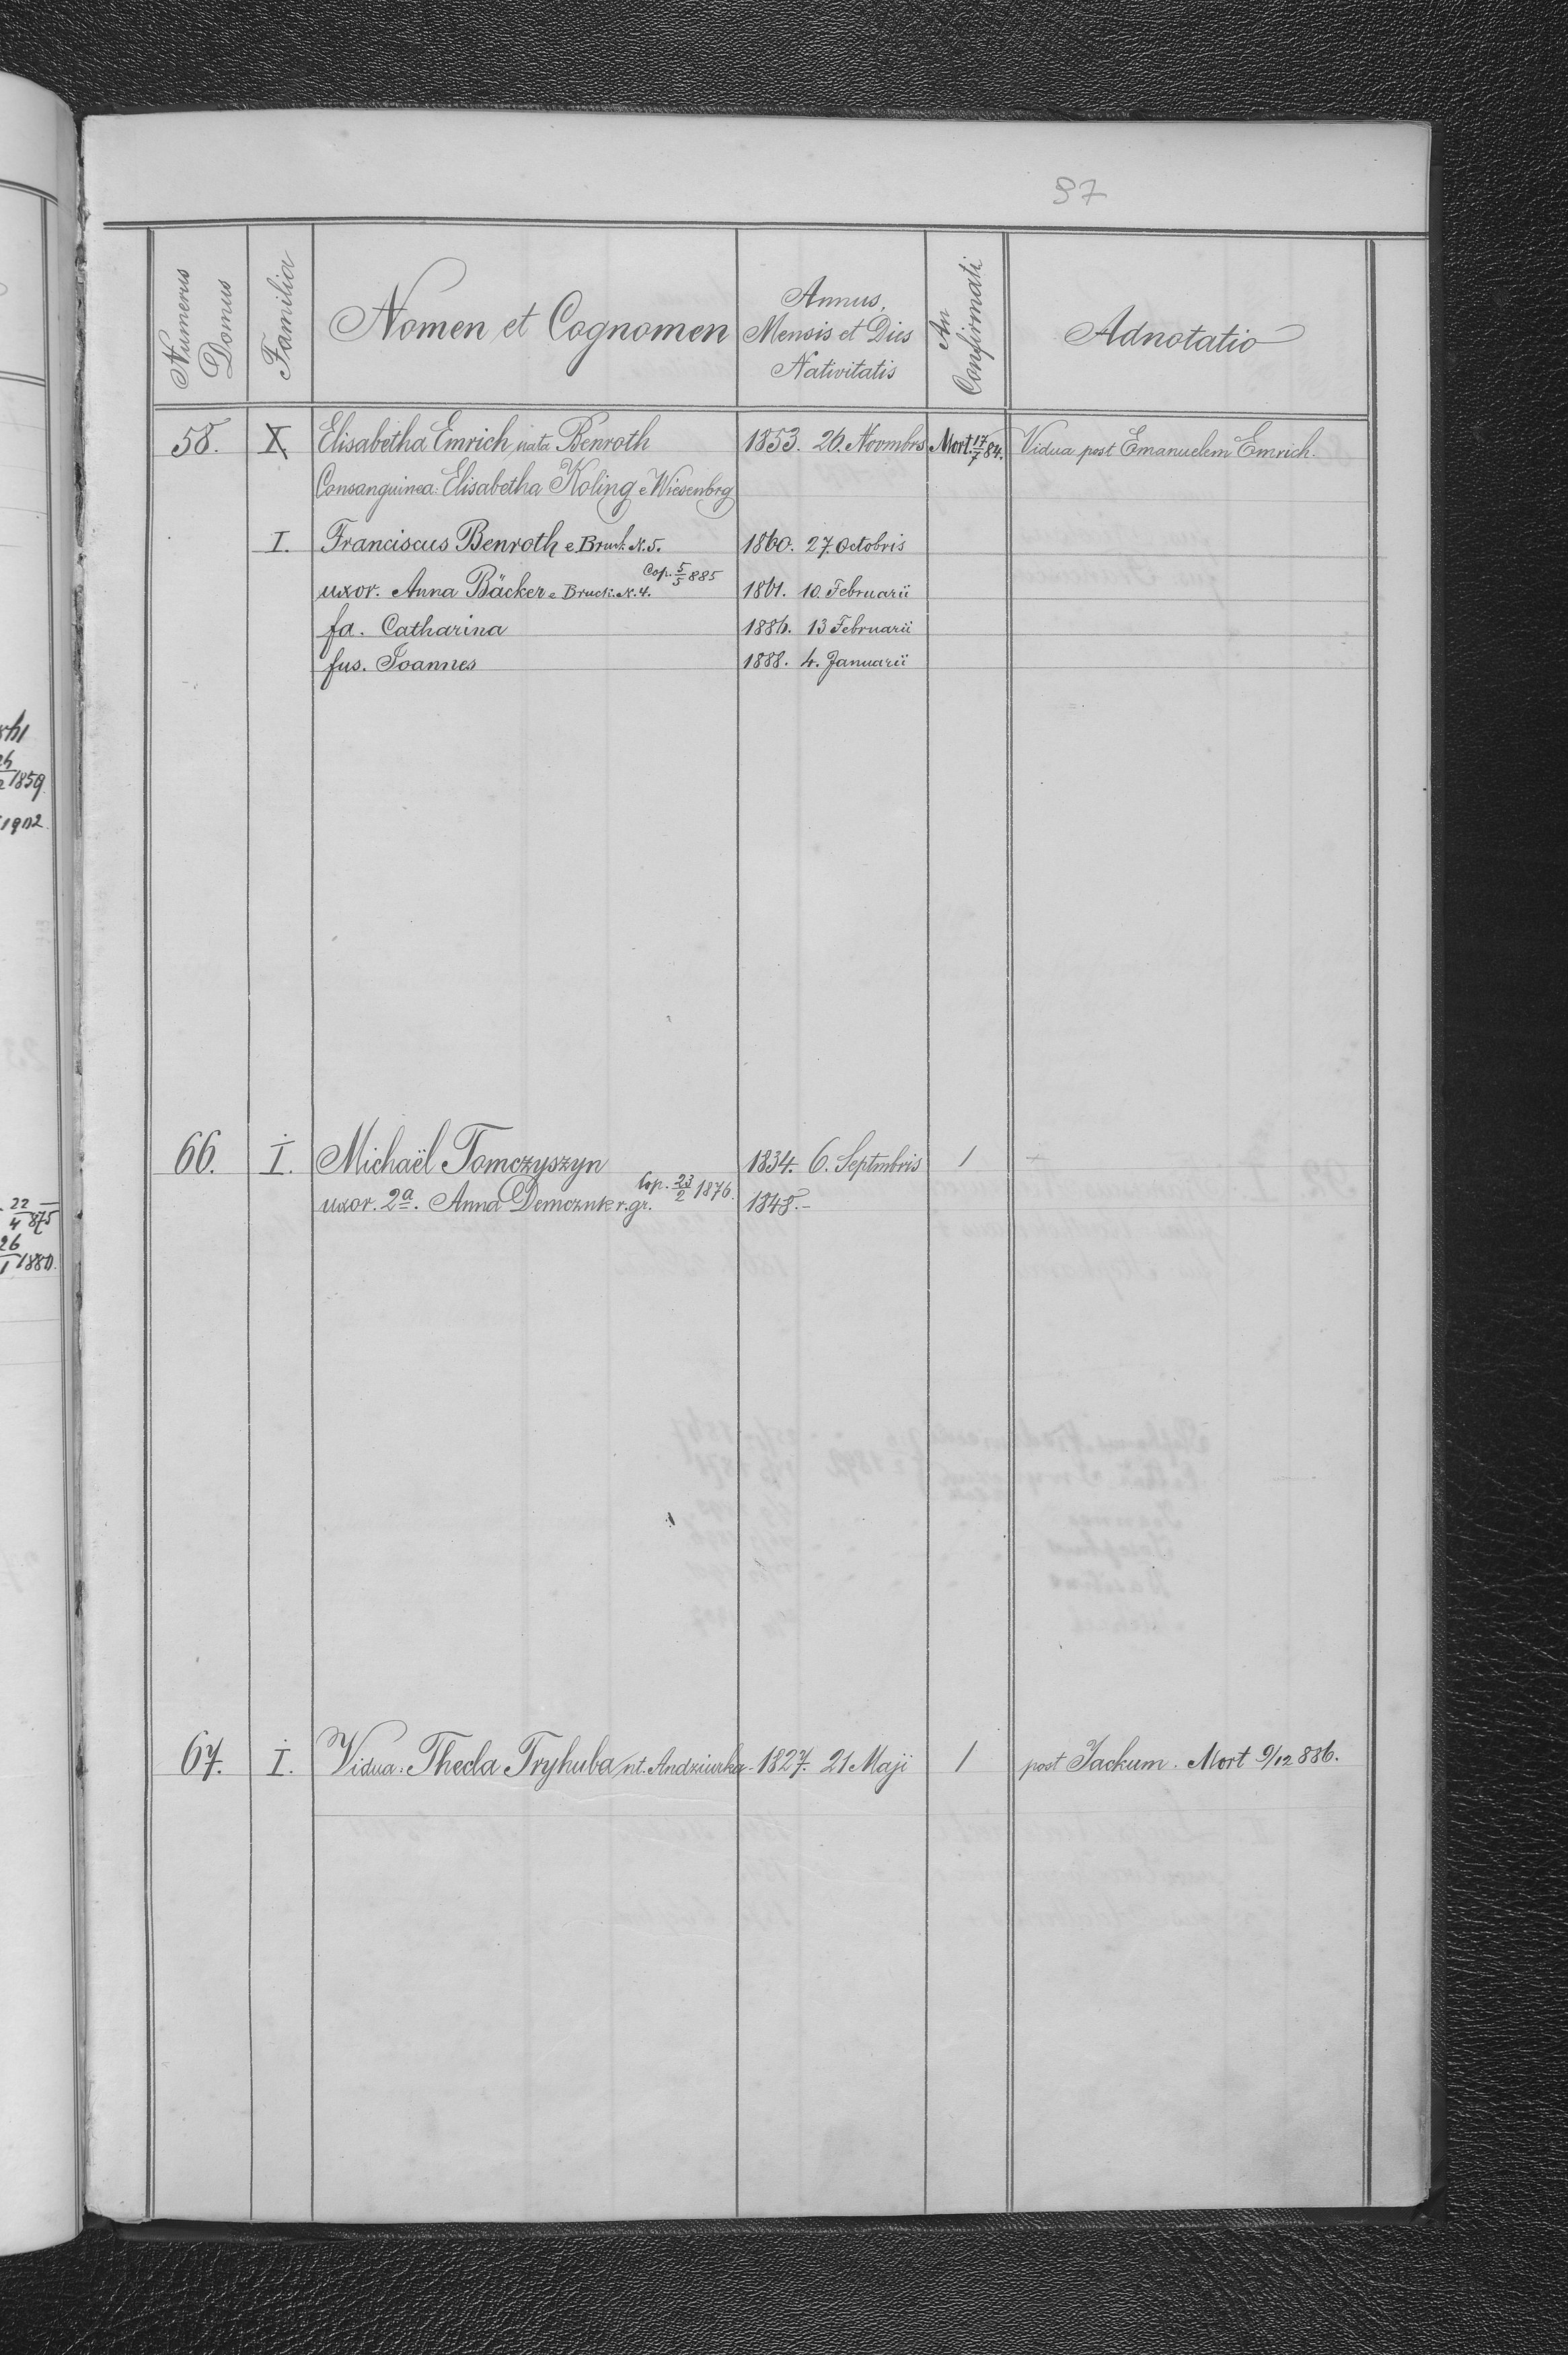 97
Numerus Domus
Familia
Nomen et Cognomen
Annus, Mensis et Dies Nativitatis
An Confirmati
Adnotatio
58. X Elisabetha Emrich nata Benroth 1853. 26. Novmbrs Mort. 17/7 84. Vidua post Emanuelem Emrich.
Consanguinea: Elisabetha Koling e Wiesenbrg
I. Franciscus Benroth e Bruck N. 5. 1860. 27. Octobris
Cop. 5/5 885
uxor. Anna Bäcker e Bruck. N. 4. 1861. 10. Februarii
fa. Catharina 1886. 13 Februarii
fus. Joannes 1888. 4. Januarii
66. I. Michaël Tomczyszyn 1834. 6. Septmbris 1 +
Cop. 23/2 1876.
uxor. 2a. Anna Demcznk r. gr. 1848.-
67. I. Vidua: Thecla Tryhuba nt. Andziurka 1827. 21 Maji 1 post Jackum. Mort 9/12 886.
1859.
1902.
22/4 875
26/1 1880.